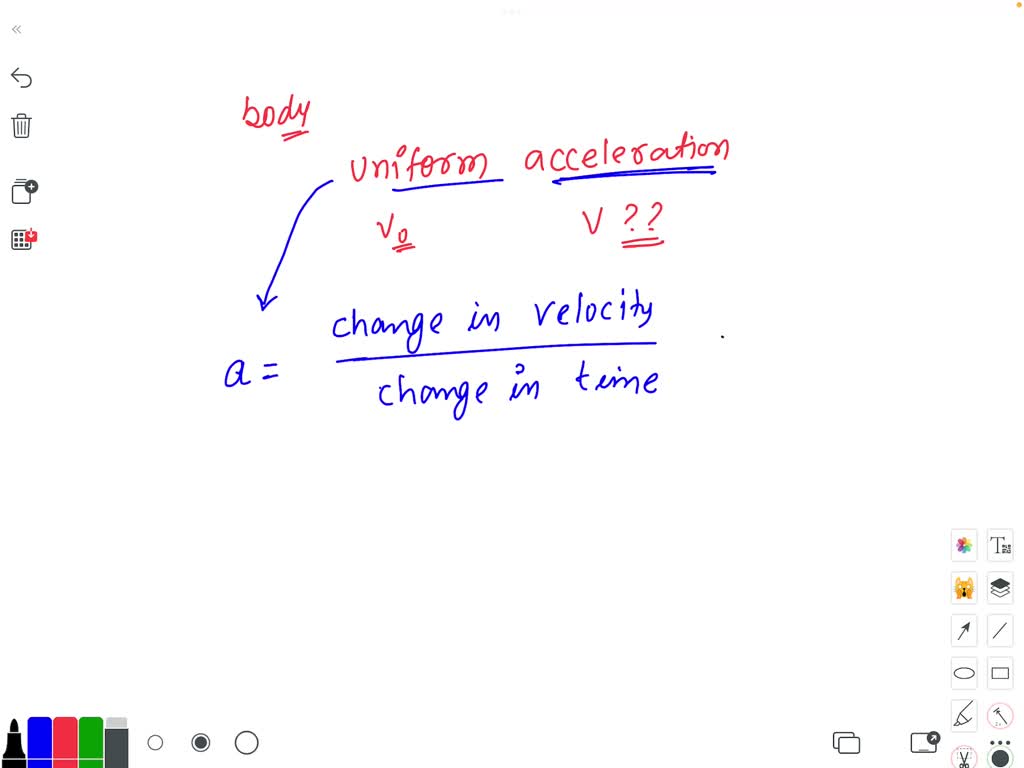 body
uniform acceleration
v₀ V ??
a = change in velocity
change in time